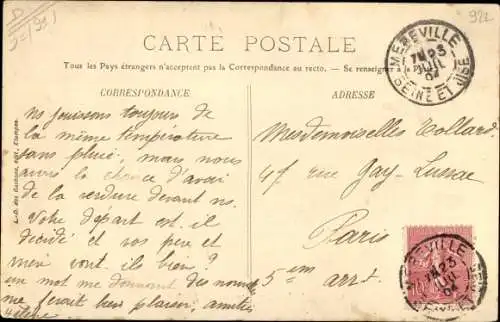 922
CARTE POSTALE
Tous les Pays étrangers n'acceptent pas la Correspondance au recto. — Se renseigner à la
CORRESPONDANCE
ADRESSE
MEREVILLE
23
JUIL
04
SEINE ET OISE
ns jouissons toujours de
la même température
sans pluie, mais nous
avons la chance d'avoir
de la verdure devant ns.
Votre départ est-il
décidé et vos père et
mère vont-ils bien ?
un mot me donnant des nouv.
me ferait bien plaisir, amitiés
Mesdemoiselles Collard
45 rue Gay-Lussac
Paris
5em arrt
MEREVILLE
23
JUIL
04